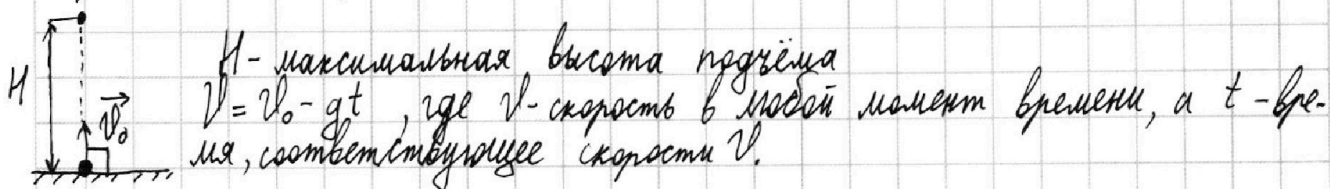 H - максимальная высота подъёма
H
V = V₀ - gt, где V - скорость в любой момент времени, а t - вре-
V⃗₀
мя, соответствующее скорости V.